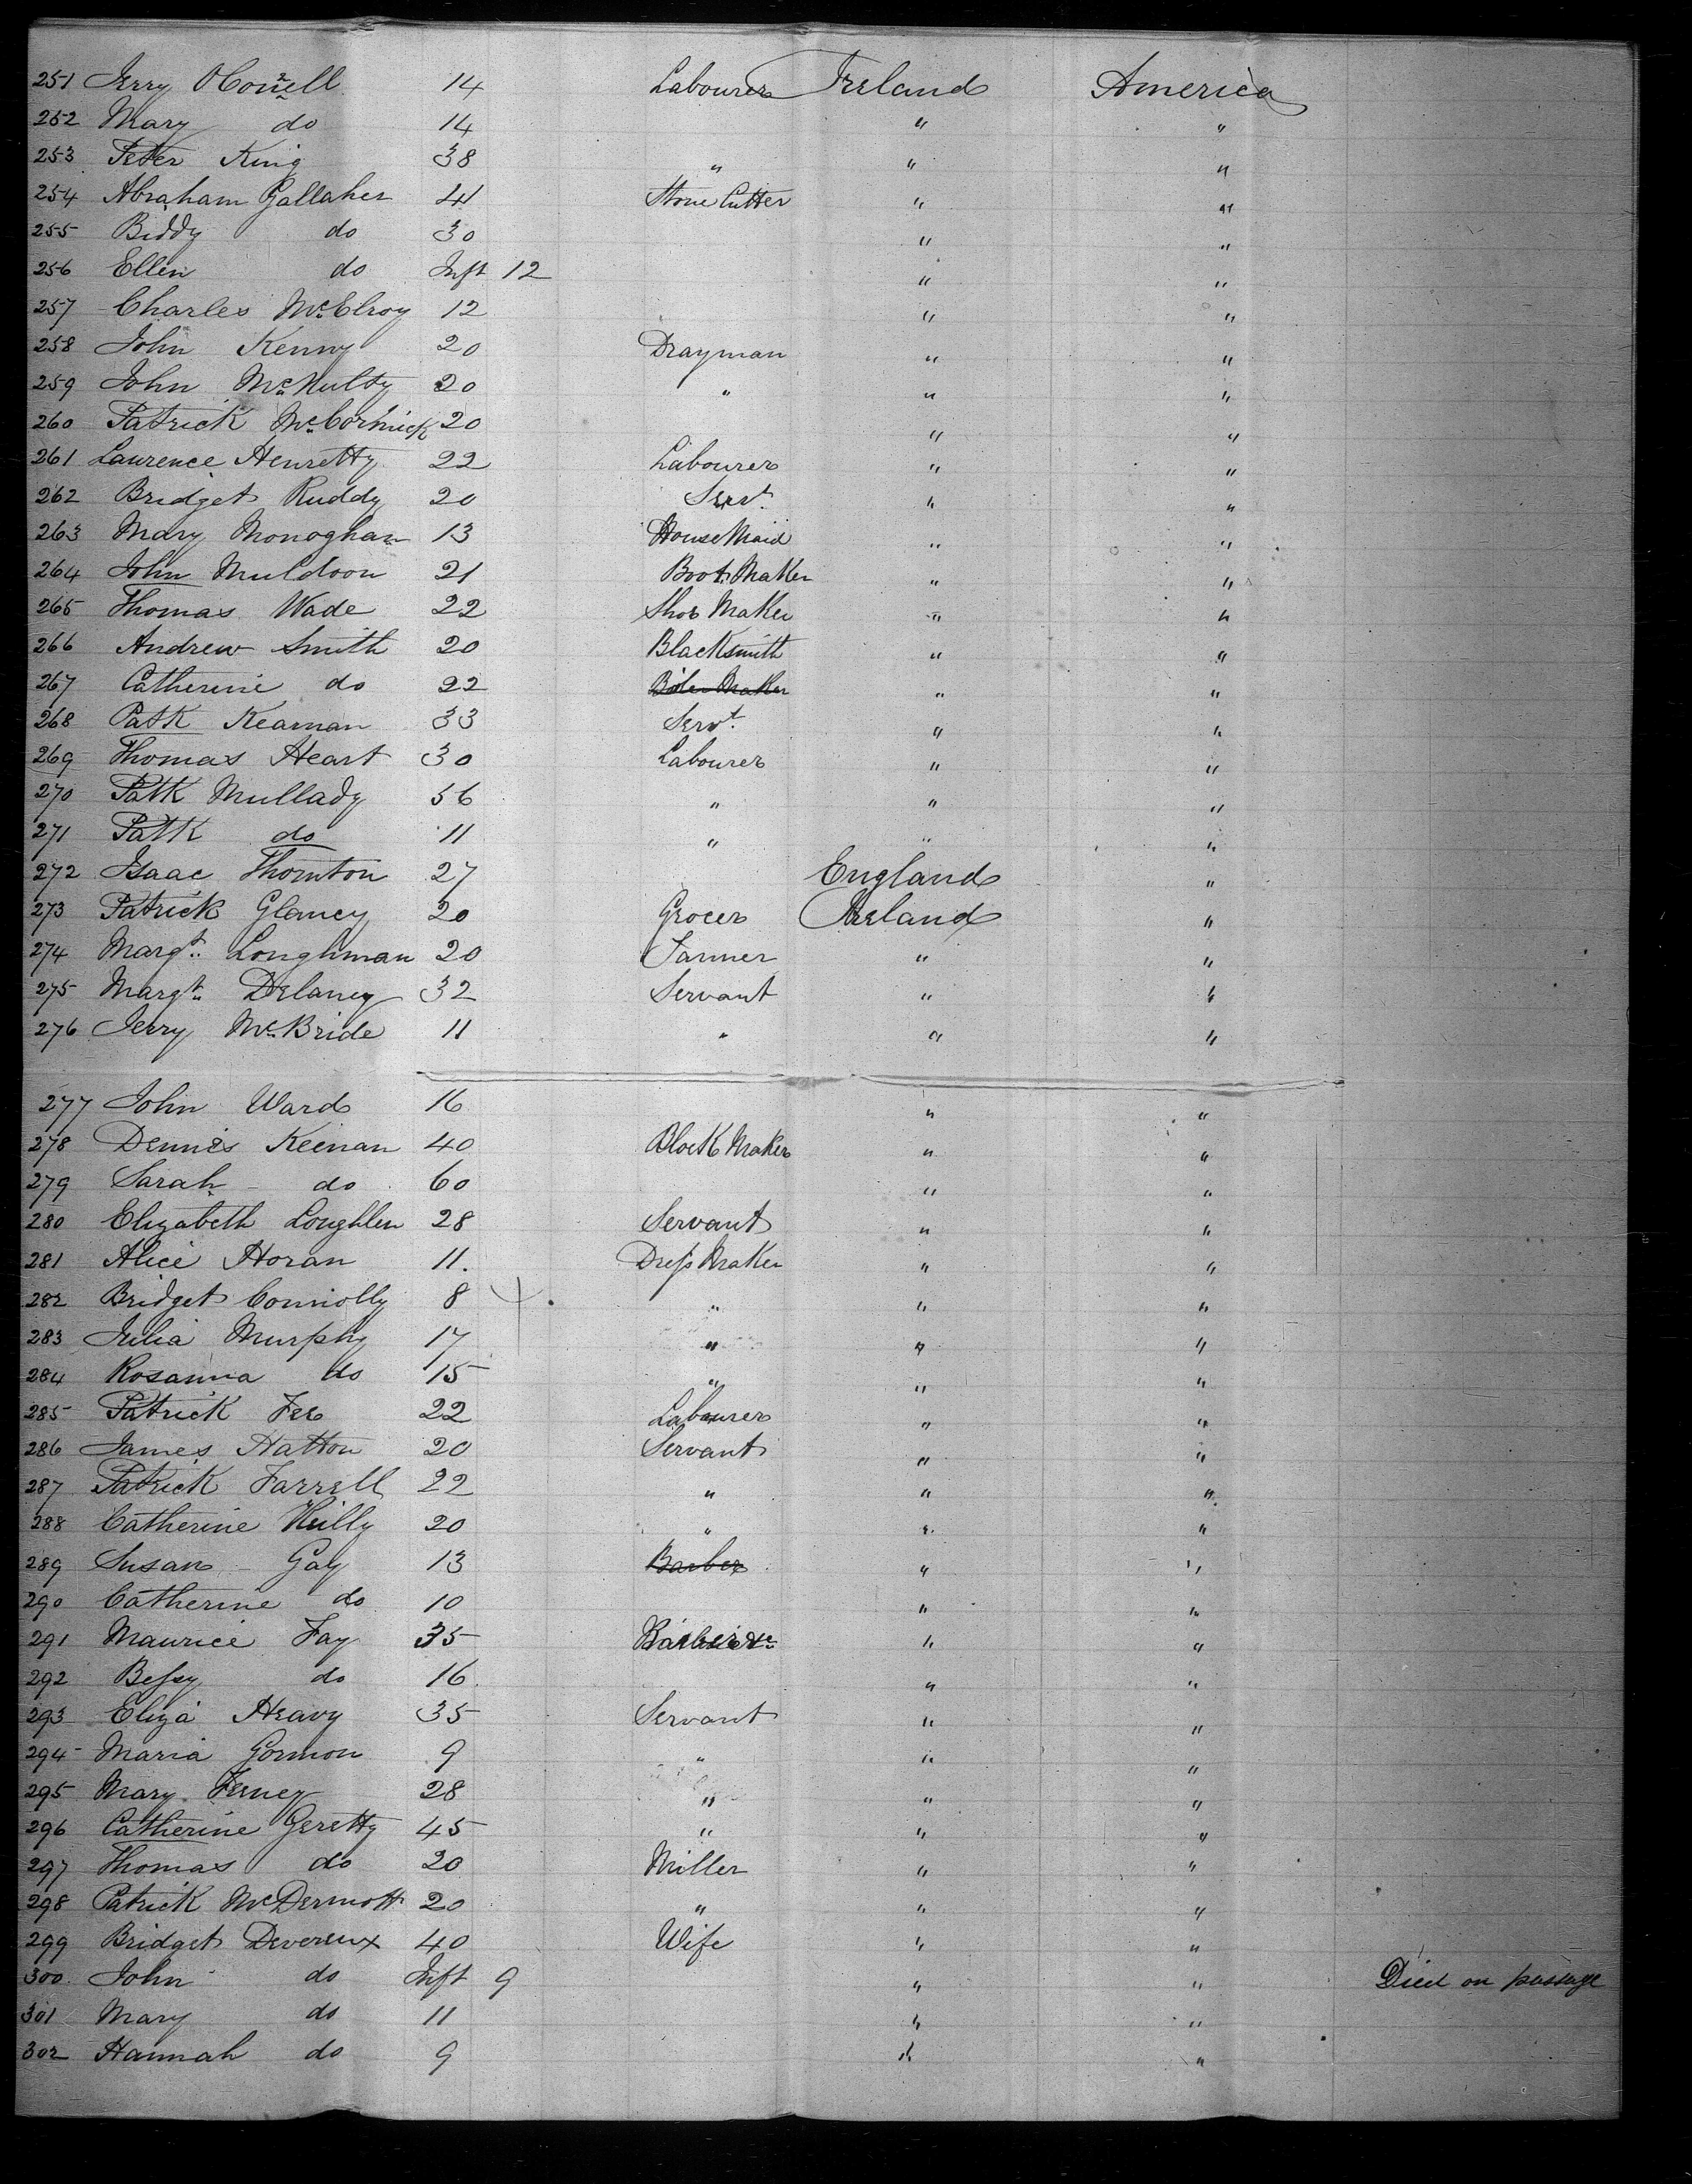 251 Jerry OConnell 14 Labourer Ireland America
252 Mary do 14 " "
253 Peter King 38 " " "
254 Abraham Gallaher 41 Stone Cutter " "
255 Biddy do 30 " "
256 Ellen do Inft 12 " "
257 Charles McElroy 12 " "
258 John Kenny 20 Drayman " "
259 John McNulty 20 " " "
260 Patrick McCormick 20 " "
261 Laurence Henretty 22 Labourer " "
262 Bridget Ruddy 20 Servt. " "
263 Mary Monoghan 13 House Maid " "
264 John Muldoon 21 Boot Maker " "
265 Thomas Wade 22 Shoe Maker " "
266 Andrew Smith 20 Blacksmith " "
267 Catherine do 22 " "
268 Patk Kearnan 33 Servt. " "
269 Thomas Heart 30 Labourer " "
270 Patk Mullady 56 " " "
271 Patk do 11 " " "
272 Isaac Thornton 27 England "
273 Patrick Glancy 20 Grocer Ireland "
274 Margt. Loughman 20 Farmer " "
275 Margt. Delaney 32 Servant " "
276 Jerry McBride 11 " " "
277 John Ward 16 " "
278 Dennis Keenan 40 Block Maker " "
279 Sarah do 60 " "
280 Elizabeth Loughlen 28 Servant " "
281 Alice Horan 11. Dress Maker " "
282 Bridget Connolly 8 " " "
283 Julia Murphy 17 " " "
284 Rosanna do 15 " " "
285 Patrick Fee 22 Labourer " "
286 James Hatton 20 Servant " "
287 Patrick Farrell 22 " " "
288 Catherine 20 " " "
289 Susan Gay 13 Barber " "
290 Catherine do 10 " "
291 Maurice Fay 35 " "
292 Bessy do 16 " "
293 Eliza Heavy 35 Servant " "
294 Maria Gormon 9 " " "
295 Mary 28 " " "
296 Catherine Geretty 45 " " "
297 Thomas do 20 Miller " "
298 Patrick McDermott 20 " " "
299 Bridget Devereux 40 Wife " "
300 John do Inft 9 " " Died on passage
301 Mary do 11 " "
302 Hannah do 9 " "